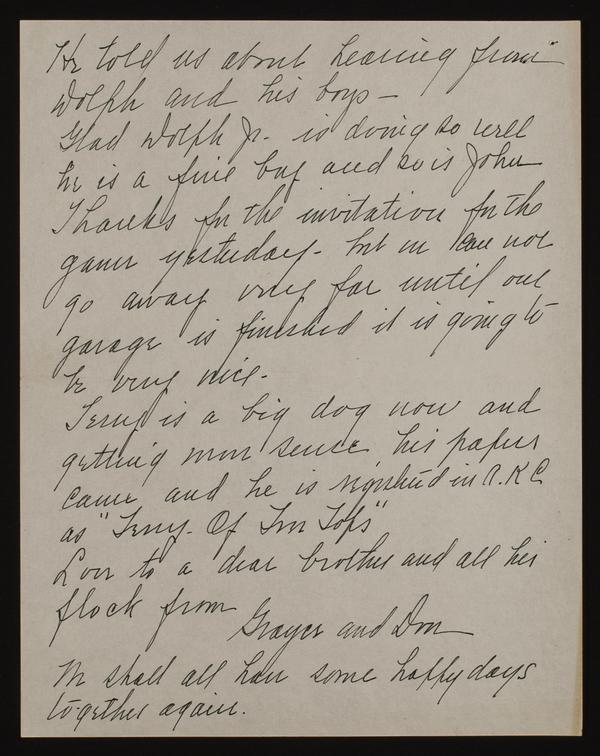 He told us about hearing from
Wolph and his boys –
Glad Wolph Jr. is doing so well
he is a fine boy and so is John
Thanks for the invitation for the
game yesterday - but we can not
go away very far until our
garage is finished it is going to
be very nice.
Terry is a big dog now and
getting more sense his papers
came and he is registered in A.K.C
as "Terry- Of Tops"
Love to a dear brother and all his
flock from
Grayce and Don
We shall all have some happy days
together again.